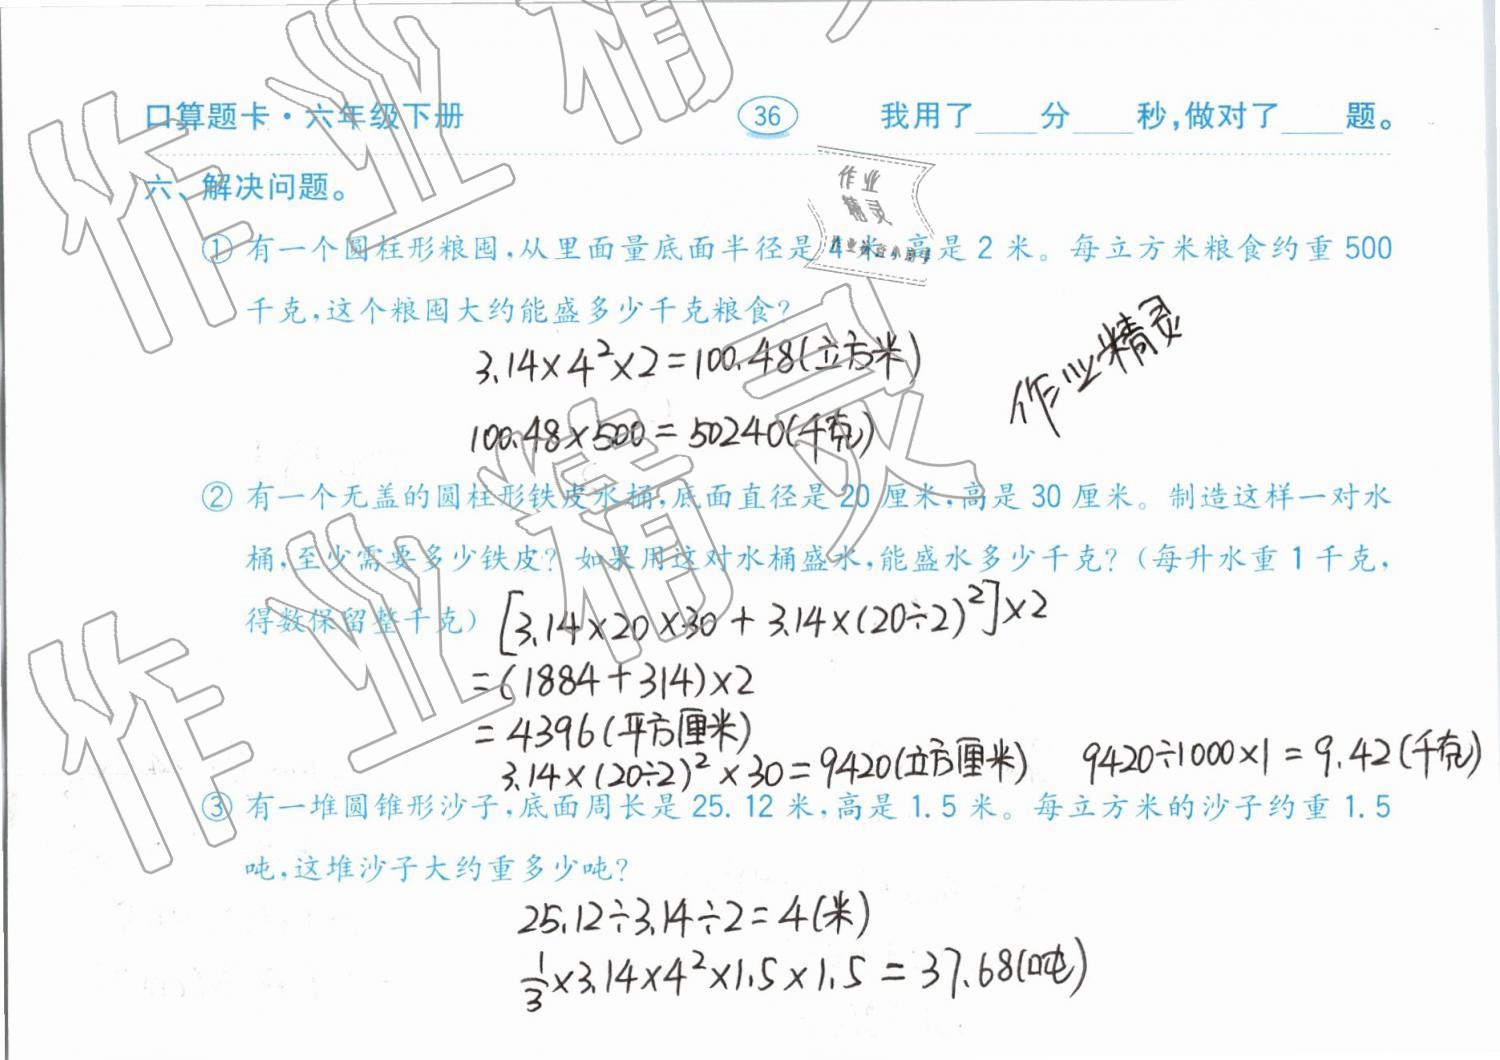 口算题卡·六年级下册 36 我用了____分____秒,做对了____题。
六、解决问题。
① 有一个圆柱形粮囤,从里面量底面半径是4米,高是2米。每立方米粮食约重500
千克,这个粮囤大约能盛多少千克粮食?
3.14×4²×2=100.48(立方米)
100.48×500=50240(千克)
② 有一个无盖的圆柱形铁皮水桶,底面直径是20厘米,高是30厘米。制造这样一对水
桶,至少需要多少铁皮?如果用这对水桶盛水,能盛水多少千克?(每升水重1千克,
得数保留整千克)
[3.14×20×30+3.14×(20÷2)²]×2
=(1884+314)×2
=4396(平方厘米)
3.14×(20÷2)²×30=9420(立方厘米) 9420÷1000×1=9.42(千克)
③ 有一堆圆锥形沙子,底面周长是25.12米,高是1.5米。每立方米的沙子约重1.5
吨,这堆沙子大约重多少吨?
25.12÷3.14÷2=4(米)
1/3×3.14×4²×1.5×1.5=37.68(吨)
作业精灵
作业
精灵
作业精灵
作业精灵